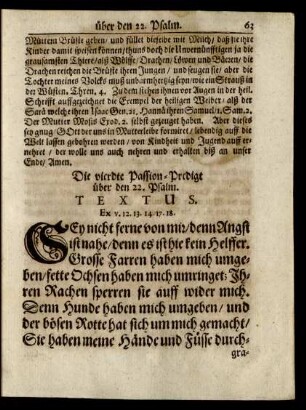 über den 22. Psalm. 63
Müttern Brüste geben/ und füllet dieselbe mit Milch/ daß sie ihre
Kinder damit speisen können/thuns doch die Unvernünfftigen ja die
grausamsten Thiere/alß Wölffe/ Drachen/ Löwen und Bären/ die
Drachen reichen die Brüste ihren Jungen/ und seugen sie/ aber die
Tochter meines Volcks muß unbarmhertzig seyn/wie ein Strauß in
der Wüsten. Thren. 4. Zu dem stehen ihnen vor Augen in der heil.
Schrifft auffgezeichnet die Exempel der heiligen Weiber/ alß der
Sara welche ihren Isaac Gen. 21. Hanna ihren Samuel/1. Sam. 2.
Der Mutter Mosis Exod. 2. selbst gezeuget haben. Aber dieses
sey gnug/ GOtt der uns in Mutterleibe formiret/ lebendig auff die
Welt lassen gebohren werden/ von Kindheit und Jugend auff er-
nehret/ der wolle uns auch nehren und erhalten biß an unser
Ende/ Amen.
Die vierdte Passion-Predigt
über den 22. Psalm.
TEXTUS.
Ex v. 12. 13. 14. 17. 18.
SEy nicht ferne von mir/denn Angst
ist nahe/denn es ist hie kein Helffer.
Grosse Farren haben mich umge-
ben/fette Ochsen haben mich umringet: Ih-
ren Rachen sperren sie auff wider mich.
Denn Hunde haben mich umgeben/ und
der bösen Rotte hat sich um mich gemacht/
Sie haben meine Hände und Füsse durch-
gra-